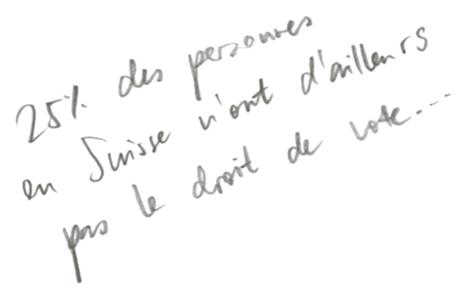 25% des personnes
en Suisse n'ont d'ailleurs
pas le droit de vote...